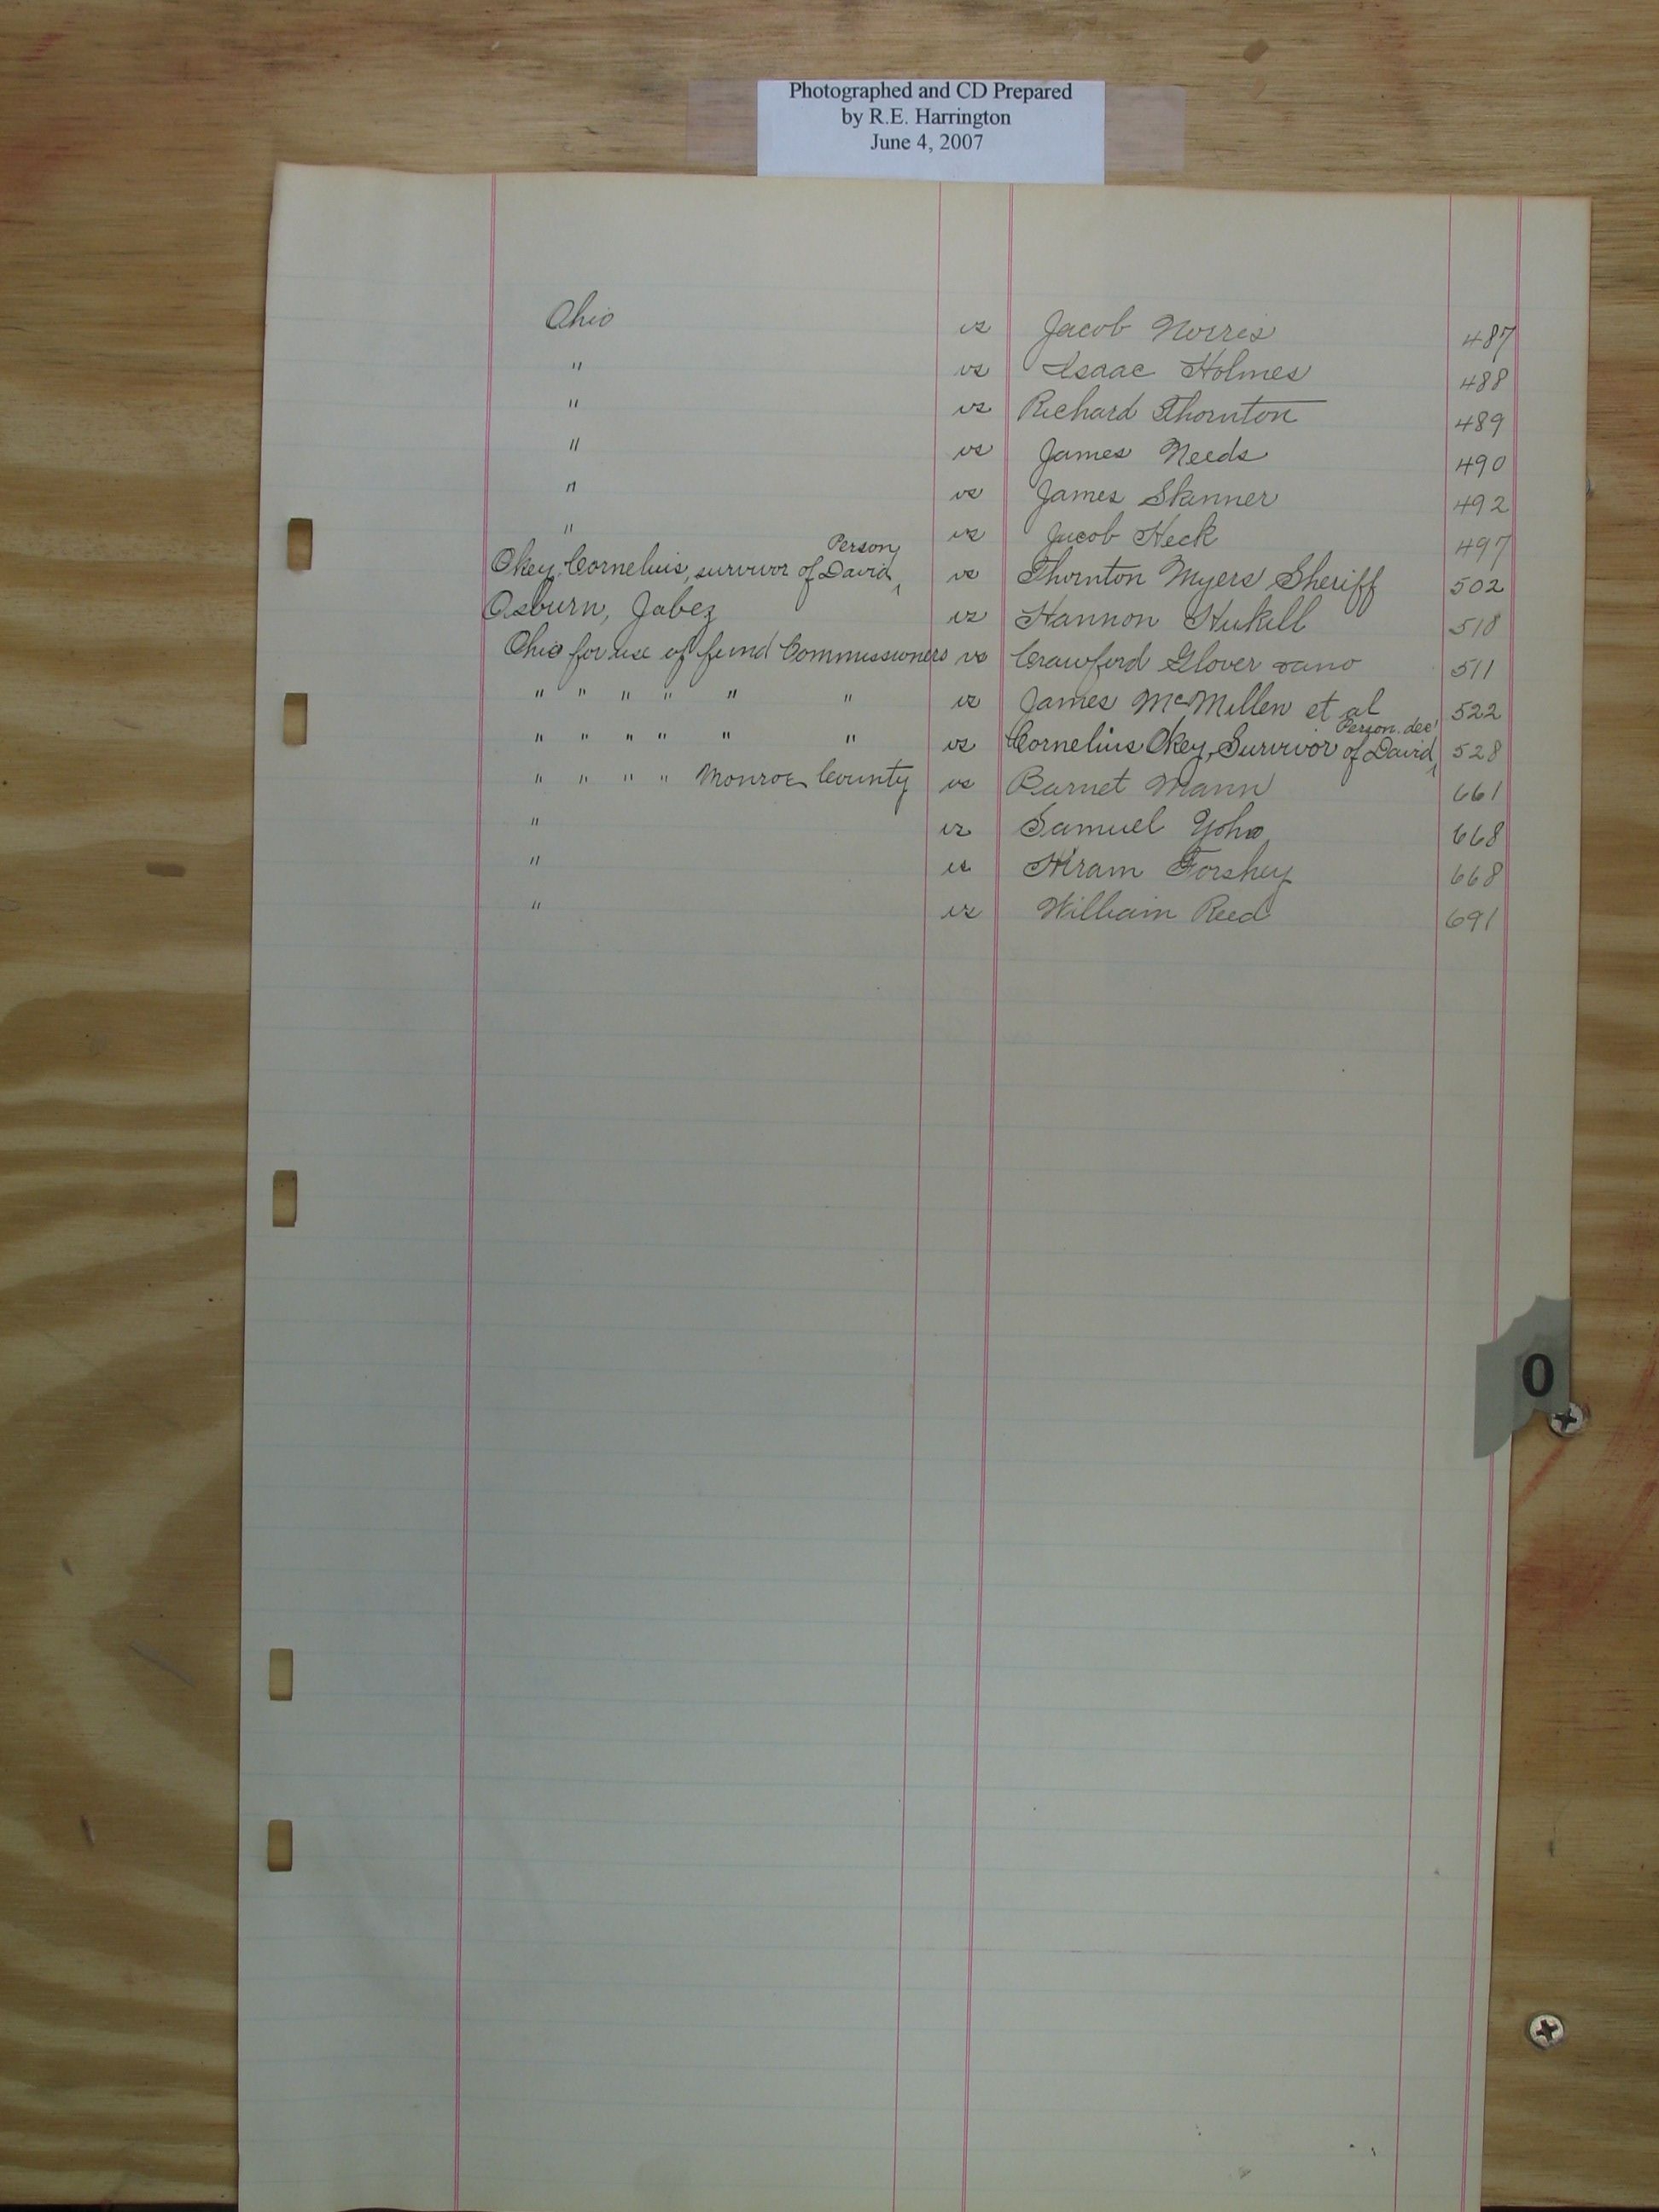 Photographed and CD Prepared
by R.E. Harrington
June 4, 2007
Ohio vs Jacob Norris 487
" vs Isaac Holmes 488
" vs Richard Thornton 489
" vs James Needs 490
" vs James Skinner 492
" vs Jacob Heck 497
Person
Okey, Cornelius, survivor of David vs Thornton Myers Sheriff 502
Osburn, Jabez vs Hannon Hukill 510
Ohio for use of fund Commissioners vs Crawford Glover 511
" " " " " " vs James McMillen et al 522
Person dec'
" " " " " " vs Cornelius Okey, Survivor of David 528
" " " " Monroe County vs Barnet Mann 661
" vs Samuel Yoho 668
" vs Hiram Forshey 668
" vs William Reed 691
O